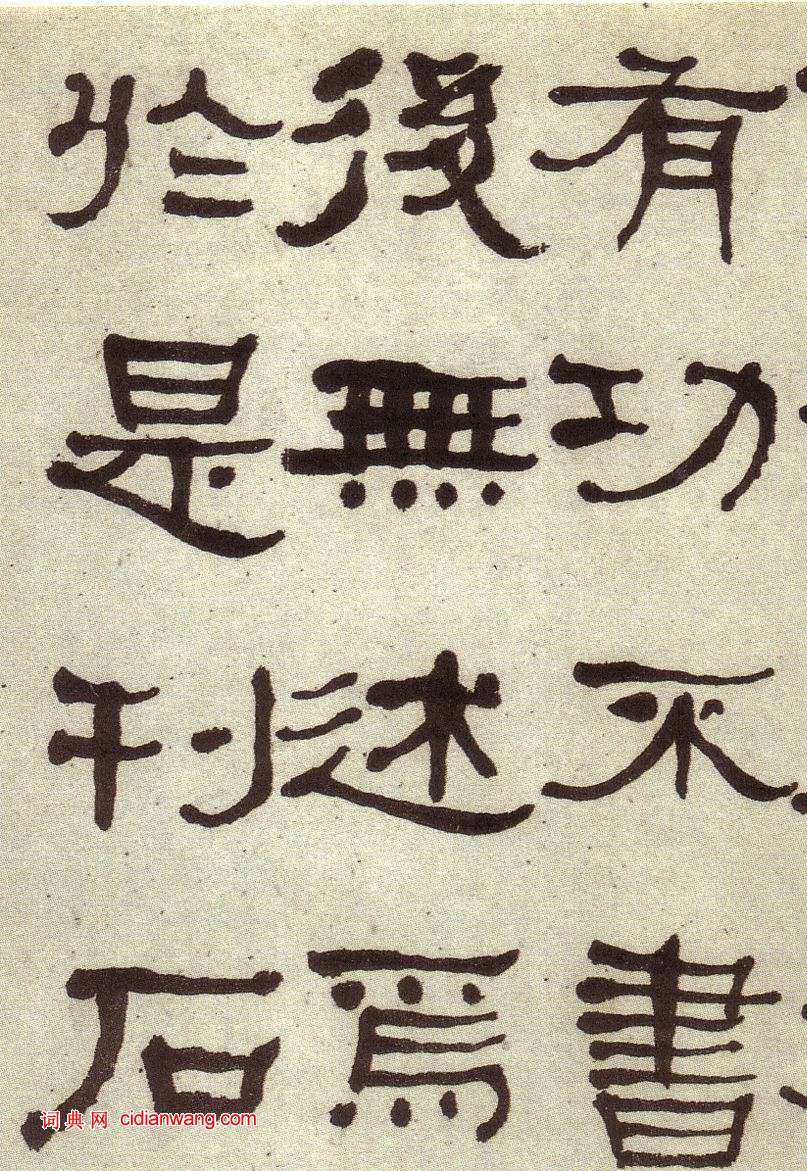 有功不書
後無述焉
於是刊石
词典网 cidianwang.com